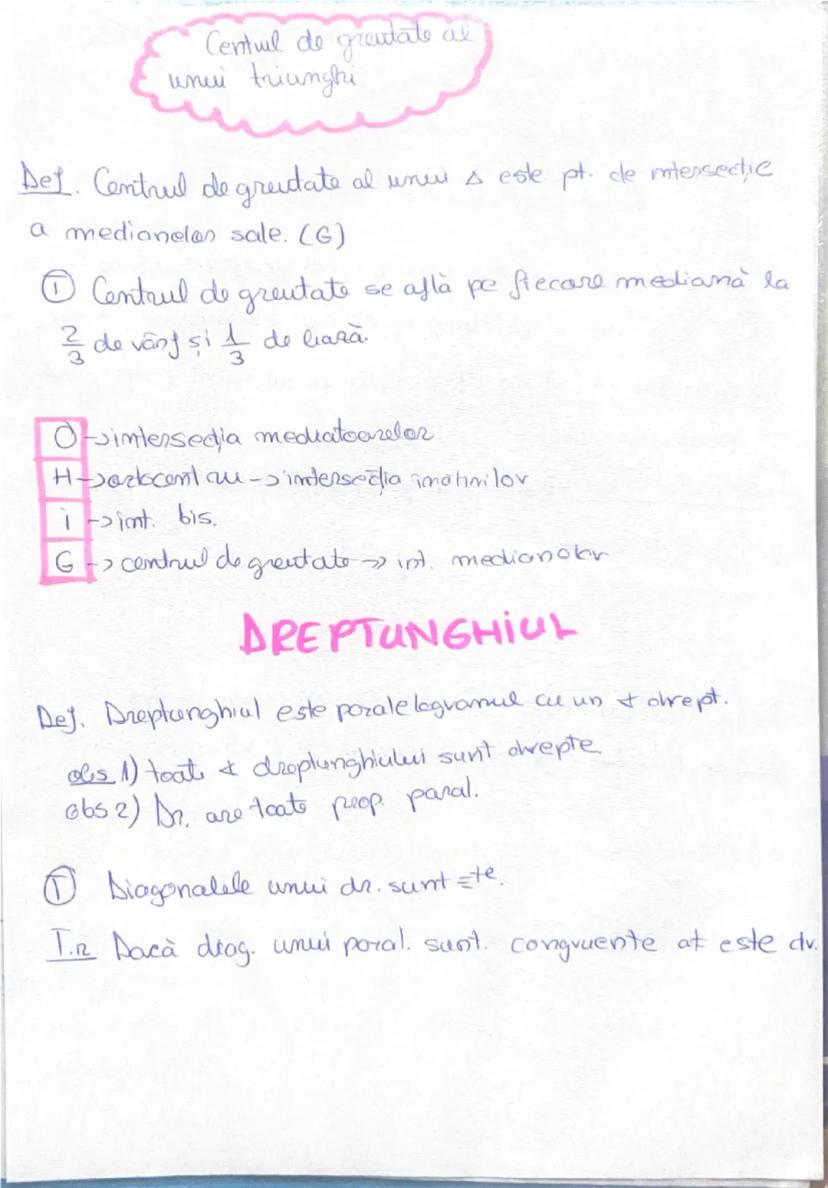 Centrul de greutate al
unui triunghi
Def. Centrul de greutate al unui △ este pt. de intersecție
a medianelor sale. (G)
Ⓣ Centrul de greutate se află pe fiecare mediană la
2/3 de vârf și 1/3 de bază.
O → intersecția mediatoarelor
H → ortocentru → intersecția înălțimilor
I → int. bis.
G → centrul de greutate → int. medianelor
DREPTUNGHIUL
Def. Dreptunghiul este paralelogramul cu un ∢ drept.
obs 1) toate ∢ dreptunghiului sunt drepte
obs 2) Dr. are toate prop. paral.
Ⓣ Diagonalele unui dr. sunt ≡te.
T.R Dacă diag. unui paral. sunt. congruente at este dr.